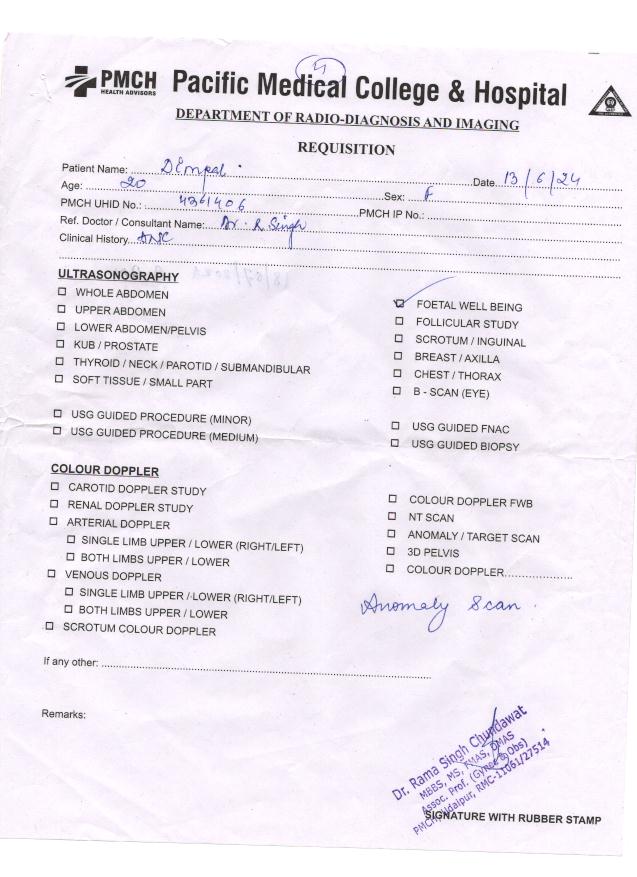 4
PMCH
HEALTH ADVISORS
Pacific Medical College & Hospital
DEPARTMENT OF RADIO-DIAGNOSIS AND IMAGING
REQUISITION
Patient Name: Dimpal Date 13/6/24
Age: 20 Sex: F
PMCH UHID No.: 4361406 PMCH IP No.:
Ref. Doctor / Consultant Name: Dr. R Singh
Clinical History ANC
ULTRASONOGRAPHY
WHOLE ABDOMEN
UPPER ABDOMEN
LOWER ABDOMEN/PELVIS
KUB / PROSTATE
THYROID / NECK / PAROTID / SUBMANDIBULAR
SOFT TISSUE / SMALL PART
FOETAL WELL BEING
FOLLICULAR STUDY
SCROTUM / INGUINAL
BREAST / AXILLA
CHEST / THORAX
B - SCAN (EYE)
USG GUIDED PROCEDURE (MINOR)
USG GUIDED PROCEDURE (MEDIUM)
USG GUIDED FNAC
USG GUIDED BIOPSY
COLOUR DOPPLER
CAROTID DOPPLER STUDY
RENAL DOPPLER STUDY
ARTERIAL DOPPLER
SINGLE LIMB UPPER / LOWER (RIGHT/LEFT)
BOTH LIMBS UPPER / LOWER
VENOUS DOPPLER
SINGLE LIMB UPPER / LOWER (RIGHT/LEFT)
BOTH LIMBS UPPER / LOWER
SCROTUM COLOUR DOPPLER
COLOUR DOPPLER FWB
NT SCAN
ANOMALY / TARGET SCAN
3D PELVIS
COLOUR DOPPLER
Anomaly Scan.
If any other:
Remarks:
Dr. Rama Singh Chundawat
MBBS, MS, FMAS, DMAS
Assoc. Prof. (Gynec & Obs)
PMCH, Udaipur, RMC-11061/27514
SIGNATURE WITH RUBBER STAMP